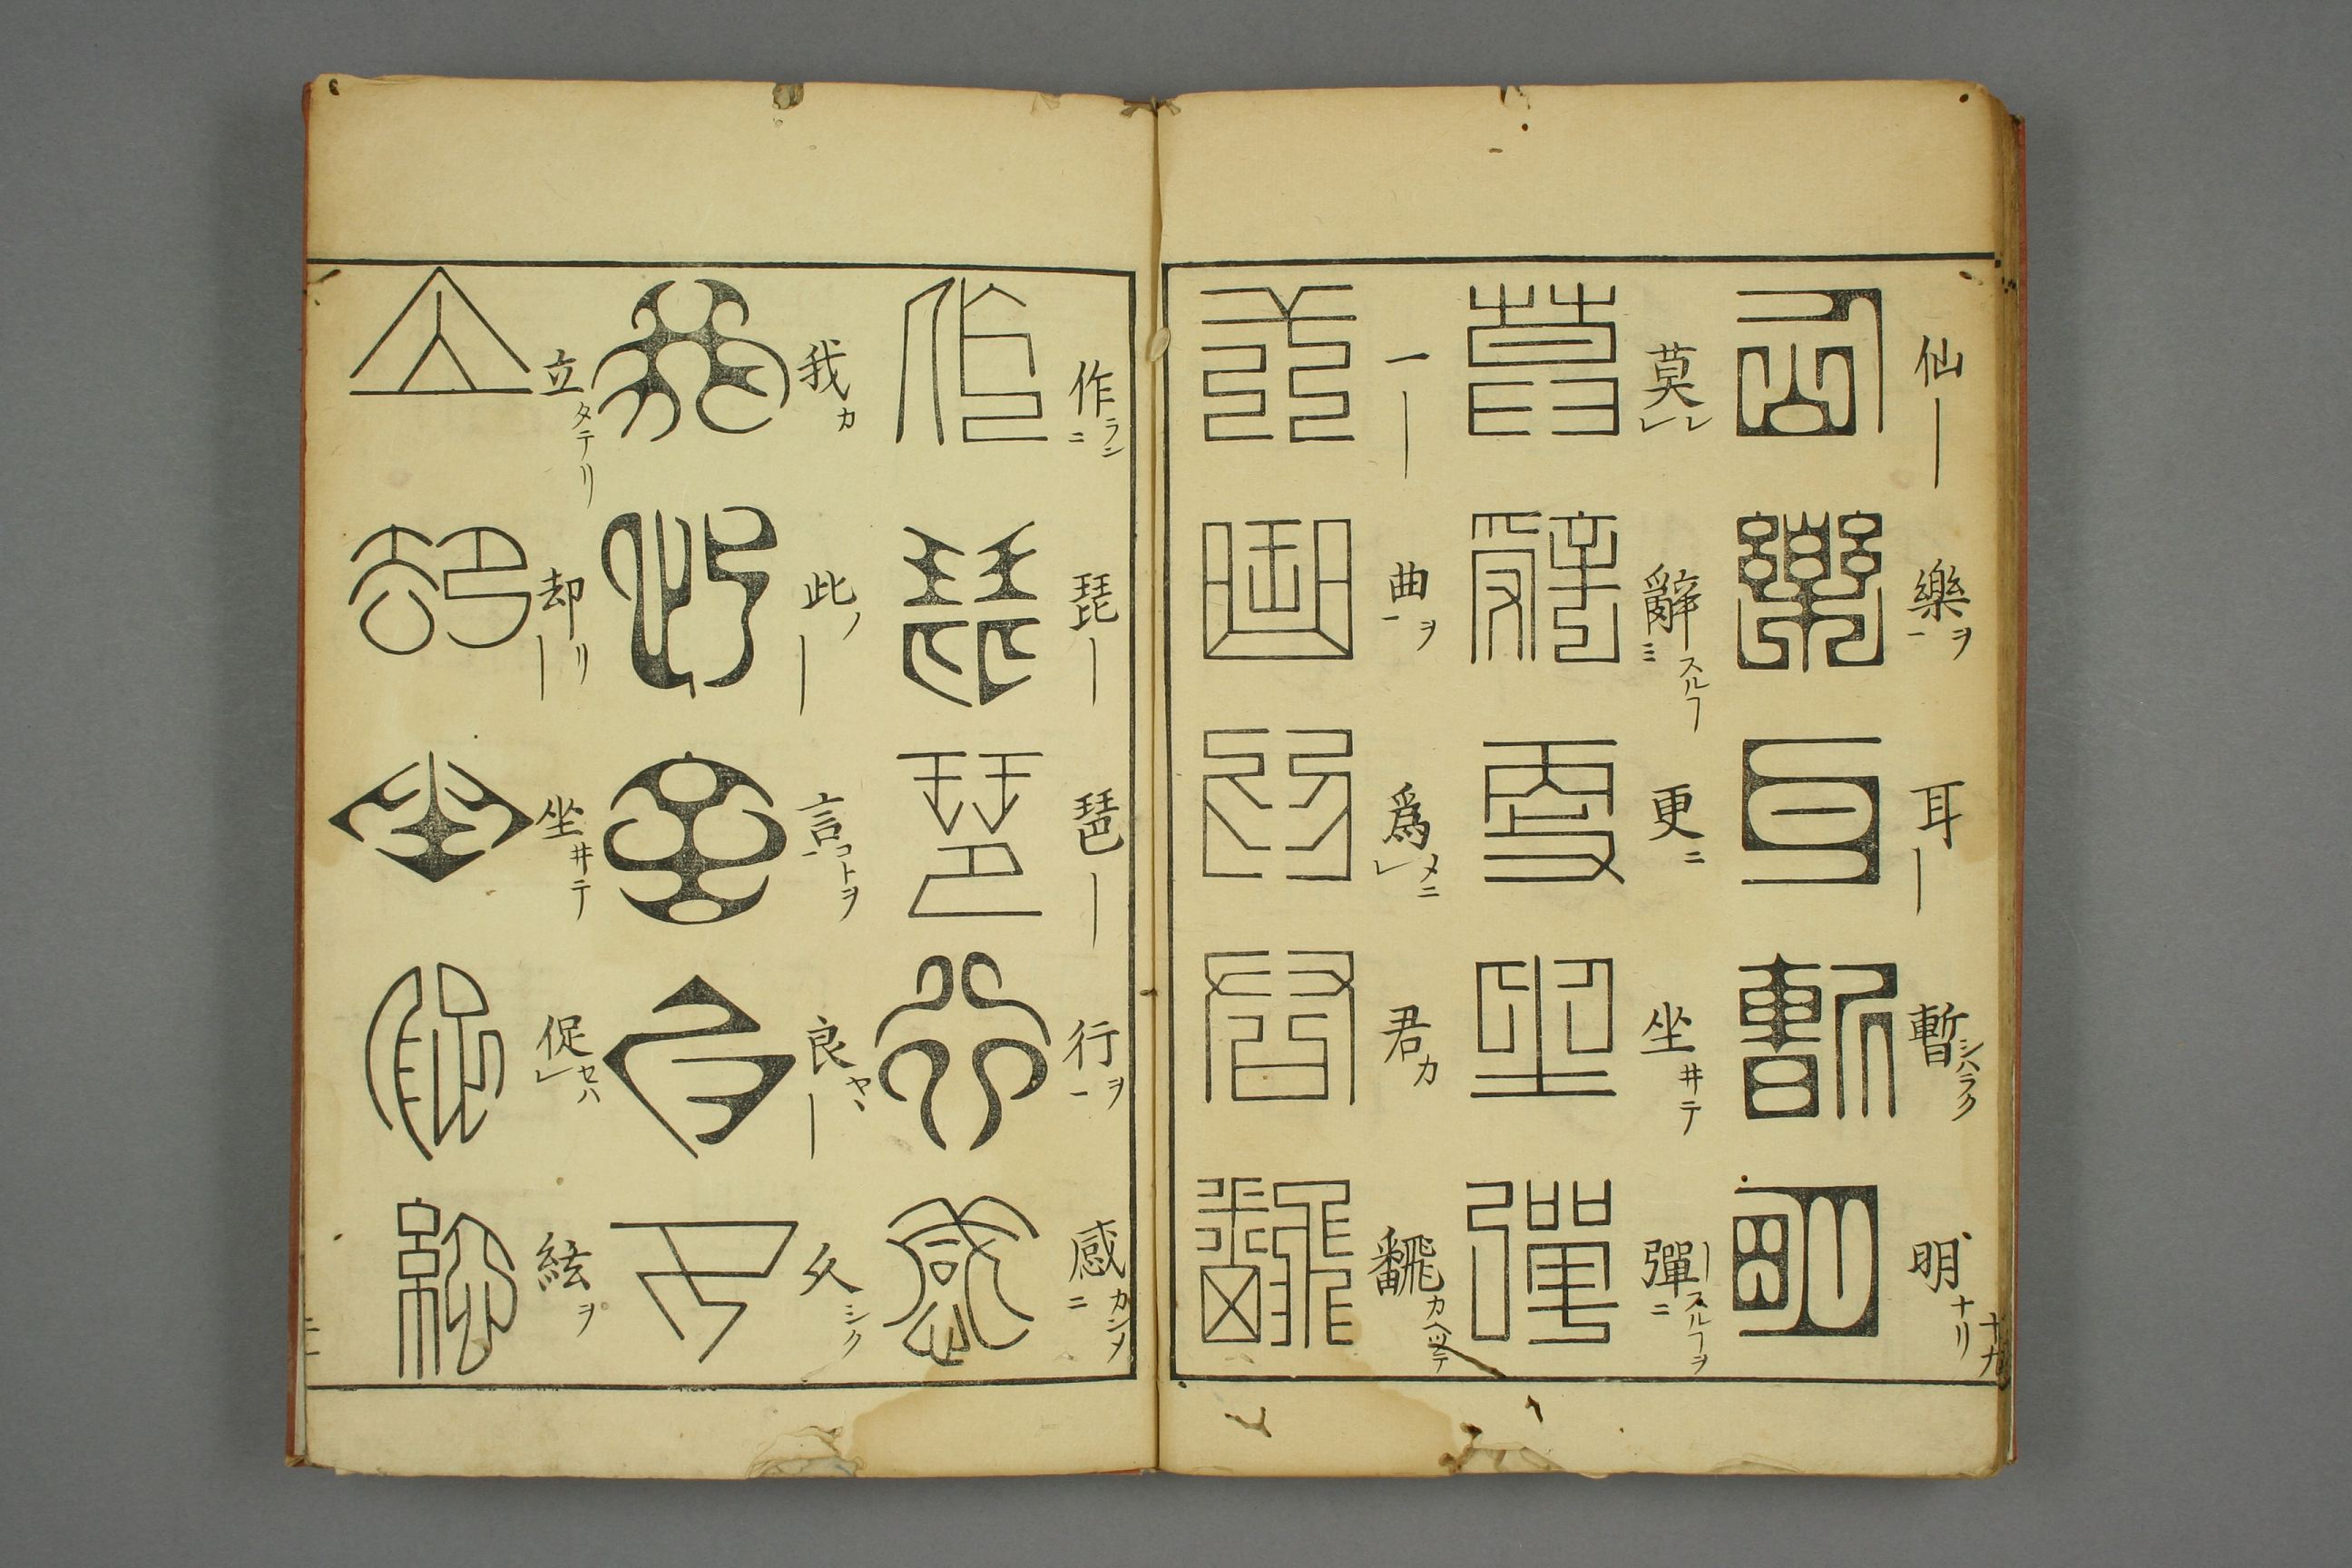 仙 樂ヲ 耳 暫シハラク 明ナリ
莫レ 辭スルヿ 更ニ 坐井テ 彈スルヿヲ
一 曲ヲ 爲メニ 君カ 飜カヘツテ
作ラシ 琵 琶 行ヲ 感カンメ
我カ 此ノ 言コトヲ 良ヤヽ 久シク
立タテリ 却リ 坐井テ 促セハ 絃ヲ